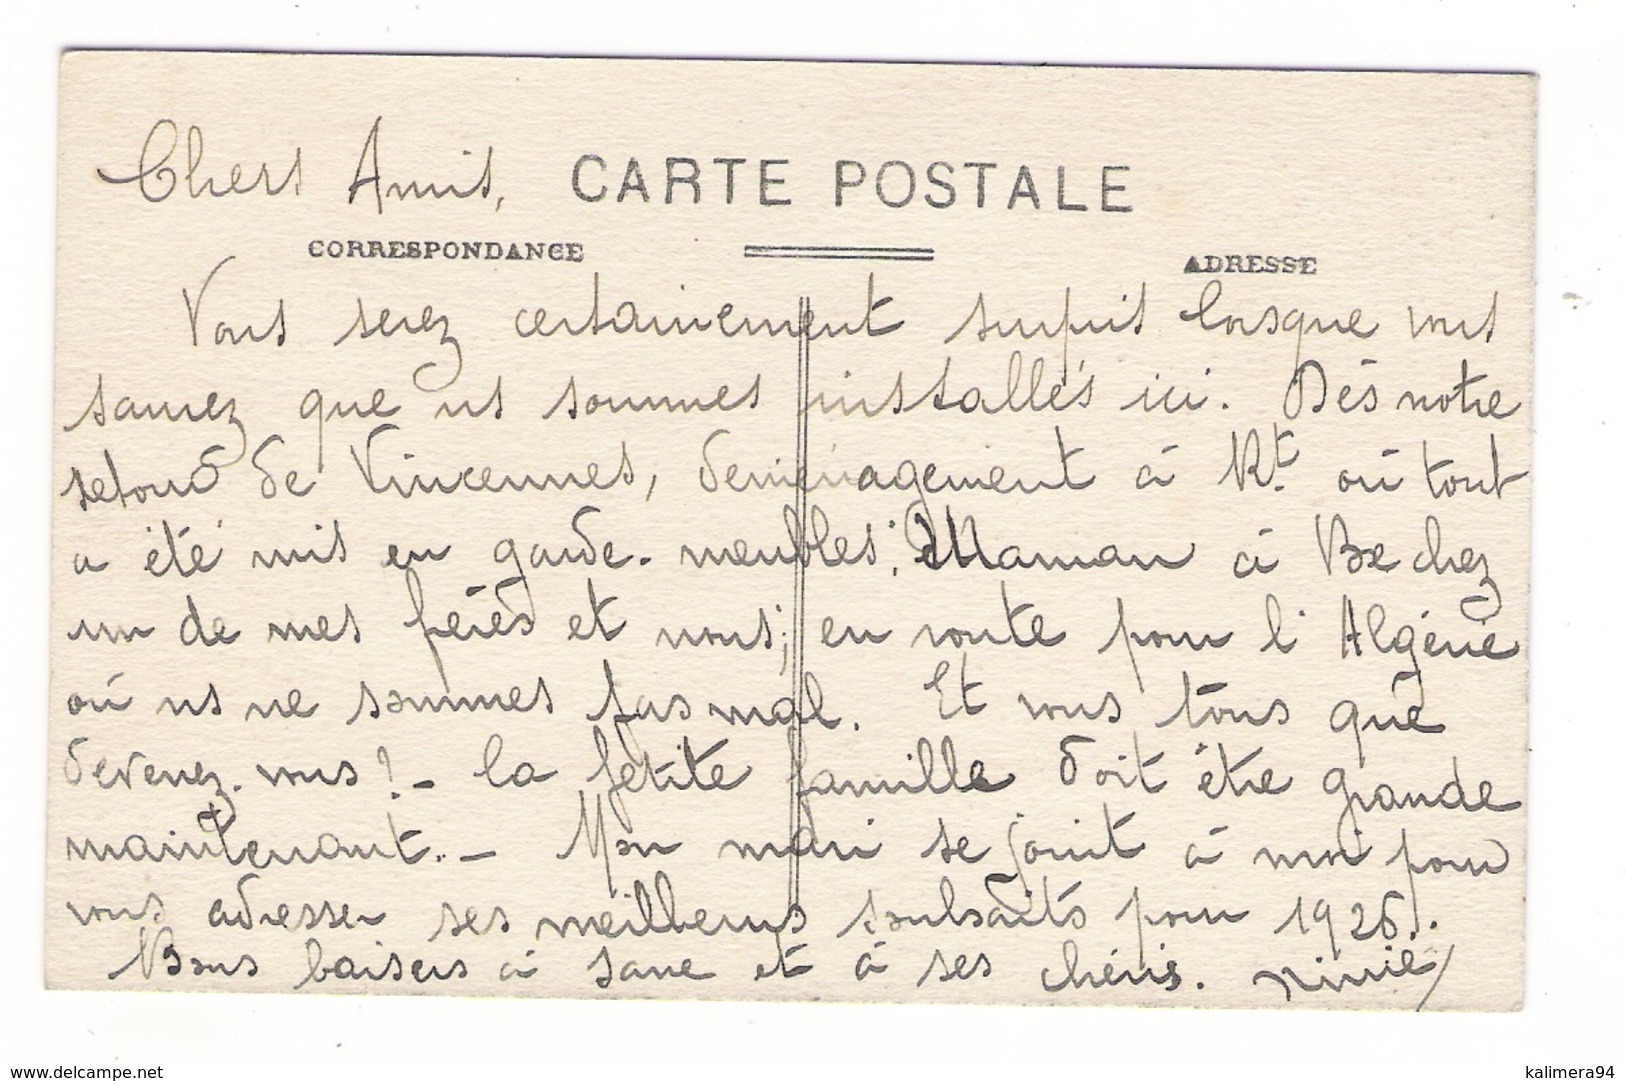 Chers Amis,
CARTE POSTALE
CORRESPONDANCE
ADRESSE
Vous serez certainement surpris lorsque vous
saurez que ns sommes installés ici. Dès notre
retour de Vincennes, deménagement à Rt. où tout
a été mis en garde. meubles; Maman à Bx chez
un de mes frères et nous; en route pour l'Algérie
où ns ne sommes pas mal. Et vous tous que
devenez-vous? - la petite famille doit être grande
maintenant. - Mon mari se joint à moi pour
vous adresser ses meilleurs souhaits pour 1926.
Bons baisers à Jane et à ses chéris. Ninie
www.delcampe.net
kalimera94